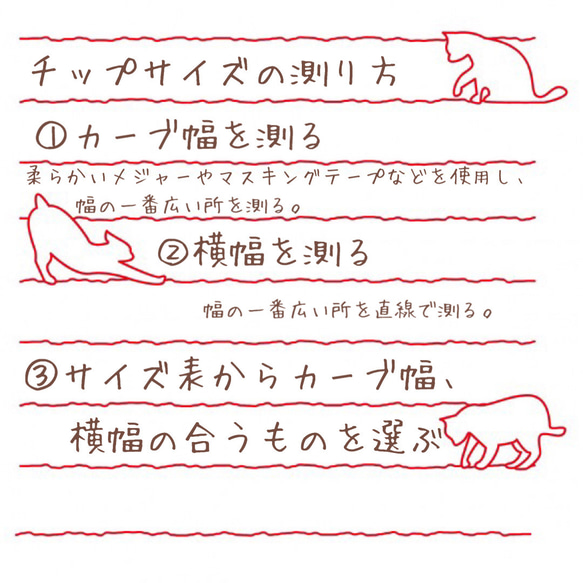 チップサイズの測り方
①カーブ幅を測る
柔らかいメジャーやマスキングテープなどを使用し、
幅の一番広い所を測る。
②横幅を測る
幅の一番広い所を直線で測る。
③サイズ表からカーブ幅、
横幅の合うものを選ぶ